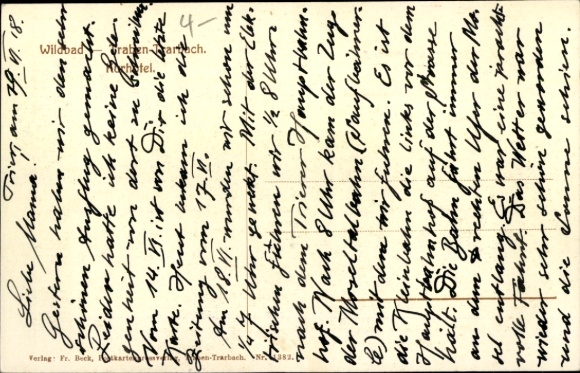 Wildbad — Traben-Trarbach.
Kurhotel.
4 —
Trier, am 19. VI. 18.
Liebe Mama!
Gestern haben wir den sehr
schönen Ausflug gemacht.
Leider hatte ich keine Gele-
genheit von dort zu schreiben.
Vom 14. VI. ist von Dir die letzte
Karte. Heut bekam ich die
Zeitung vom 17. VI.
Am 18. VI. wurden wir schon um
¼ 7 Uhr geweckt. Mit der Elek-
trischen fuhren wir ½ 8 Uhr
nach dem Trierer Hauptbahn-
hof. Nach 8 Uhr kam der Zug
der Moseltalbahn (Saufbähn-
le) mit dem wir fuhren. Es ist
die Kleinbahn die links vor dem
Hauptbahnhof auf der Strasse
hält. Die Bahn fährt immer
an dem rechten Ufer der Mo-
sel entlang. Es war eine pracht-
volle Fahrt. Das Wetter war
wieder sehr schön geworden
und die Sonne schien.
Verlag: Fr. Bock, Postkartengrossverlag, Traben-Trarbach. Nr. 1382.